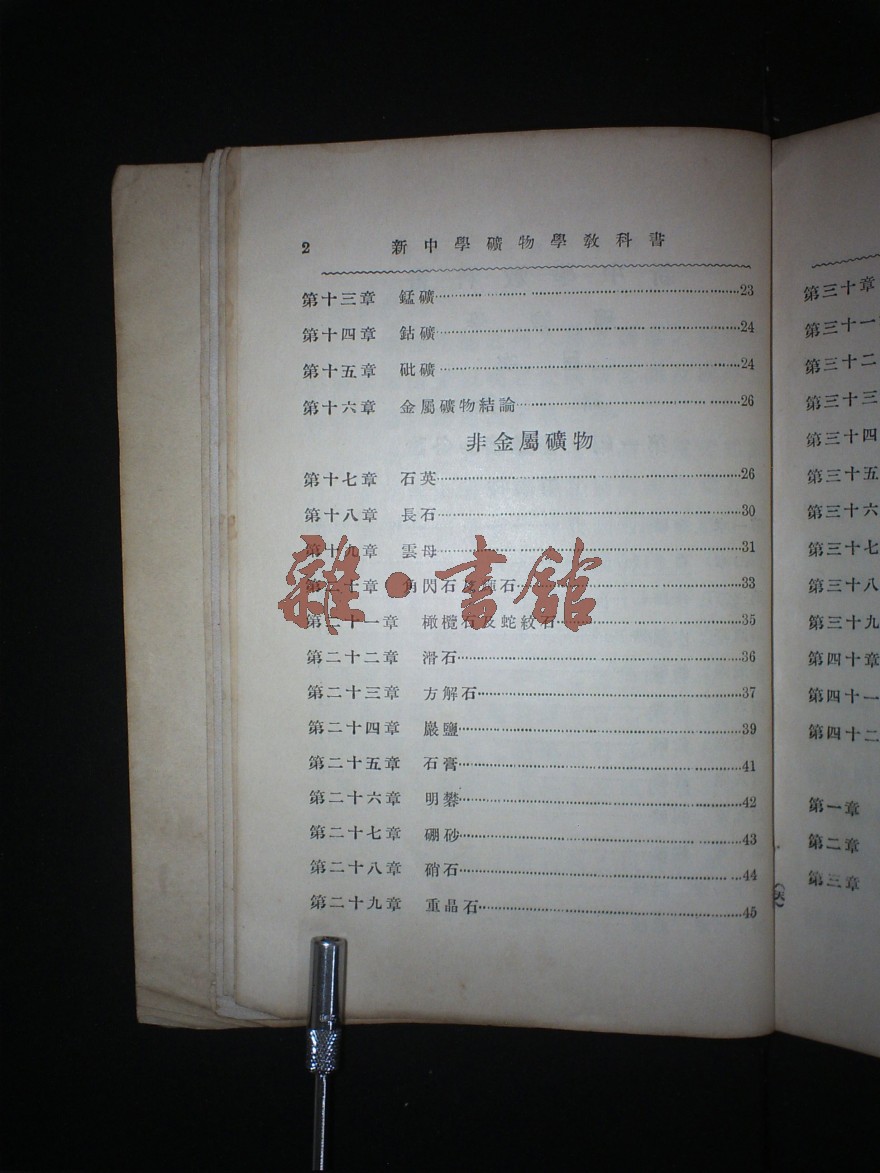 2 新中學礦物學教科書
第十三章 錳礦 23
第十四章 鈷礦 24
第十五章 砒礦 24
第十六章 金屬礦物結論 26
非金屬礦物
第十七章 石英 26
第十八章 長石 30
第十九章 雲母 31
第二十章 角閃石及輝石 33
第二十一章 橄欖石及蛇紋石 35
第二十二章 滑石 36
第二十三章 方解石 37
第二十四章 巖鹽 39
第二十五章 石膏 41
第二十六章 明礬 42
第二十七章 硼砂 43
第二十八章 硝石 44
第二十九章 重晶石 45
雜·書館
第三十章
第三十一
第三十二
第三十三
第三十四
第三十五
第三十六
第三十七
第三十八
第三十九
第四十章
第四十一
第四十二
第一章
第二章
第三章